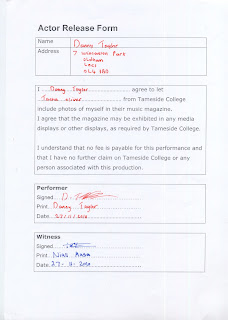 Actor Release Form
Name Danny Taylor
Address 7
Park
Oldham
I Danny Taylor agree to let
from Tameside College
include photos of myself in their music magazine.
I agree that the magazine may be exhibited in any media
displays or other displays, as required by Tameside College.
I understand that no fee is payable for this performance and
that I have no further claim on Tameside College or any
person associated with this production.
Performer
Signed
Print Danny Taylor
Date
Witness
Signed
Print
Date